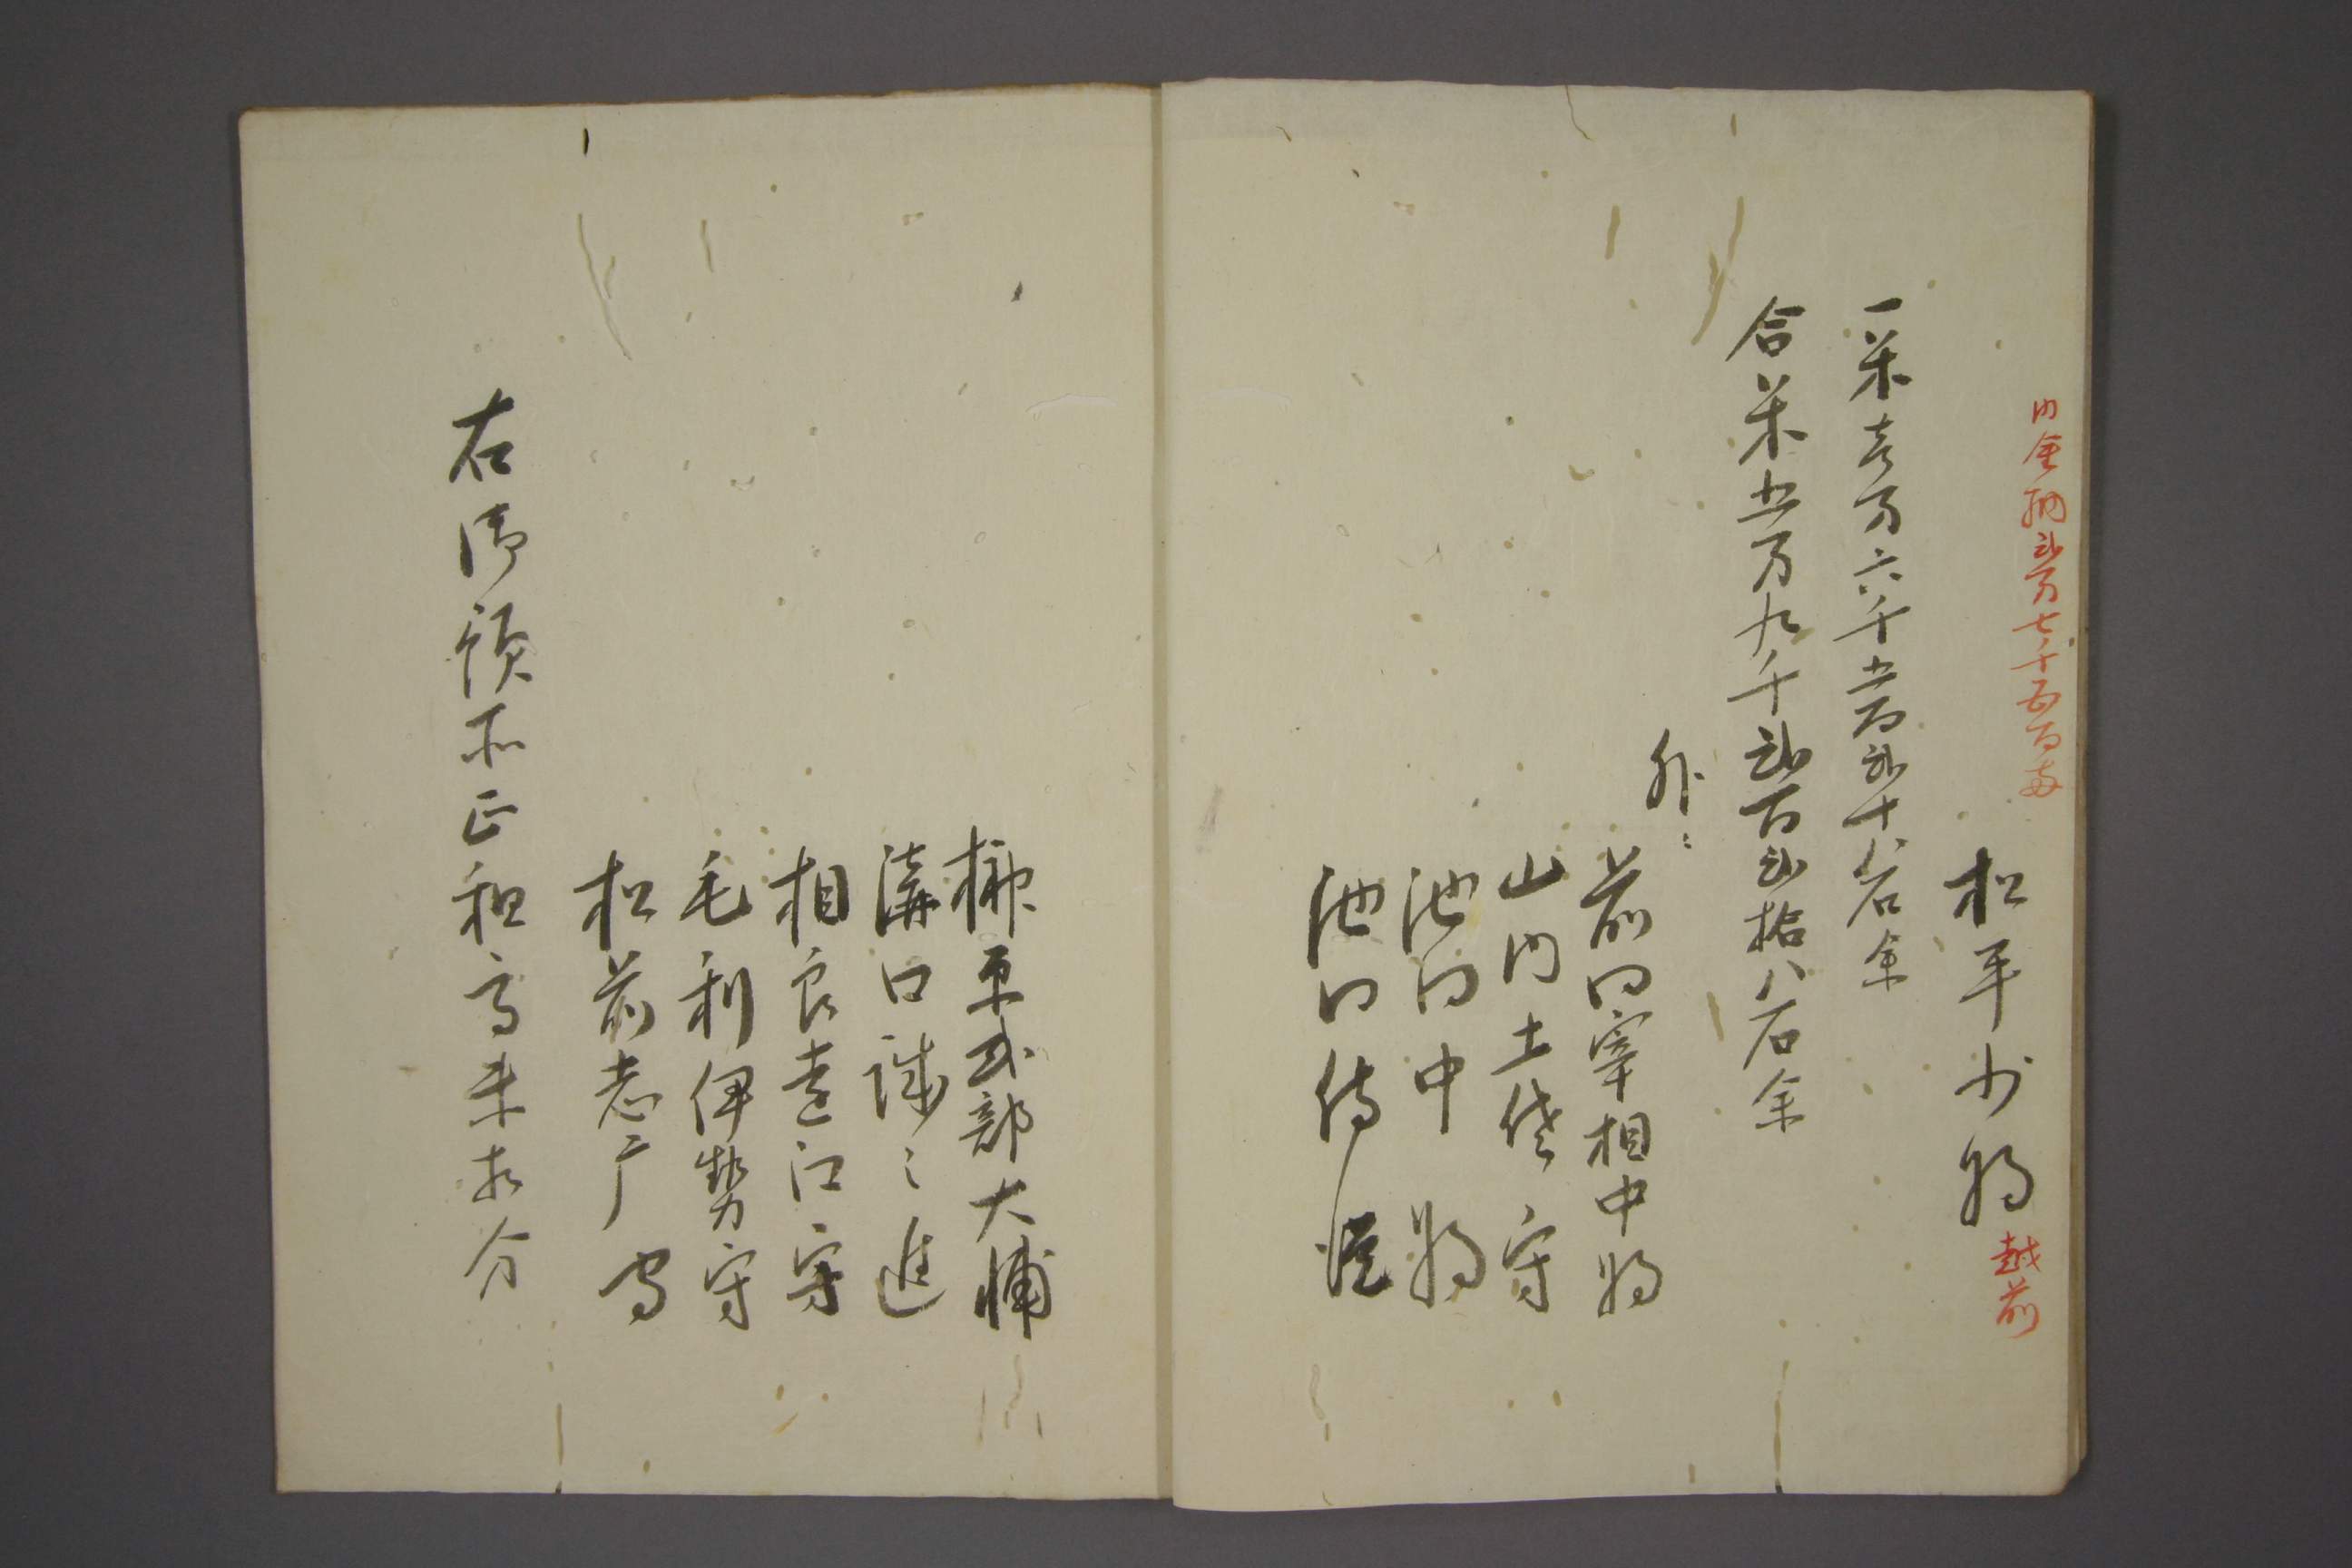 内金納弐万七千五百両
松平少将 越前
一米壱万六千五百弐十八石余
合米五万九千弐百弐拾八石余
外ニ
前田宰相中将
山内土佐守
池田中将
池田侍従
榊原式部大輔
溝口誠之進
相良遠江守
毛利伊勢守
松前志广守
右御預所正租高未相分